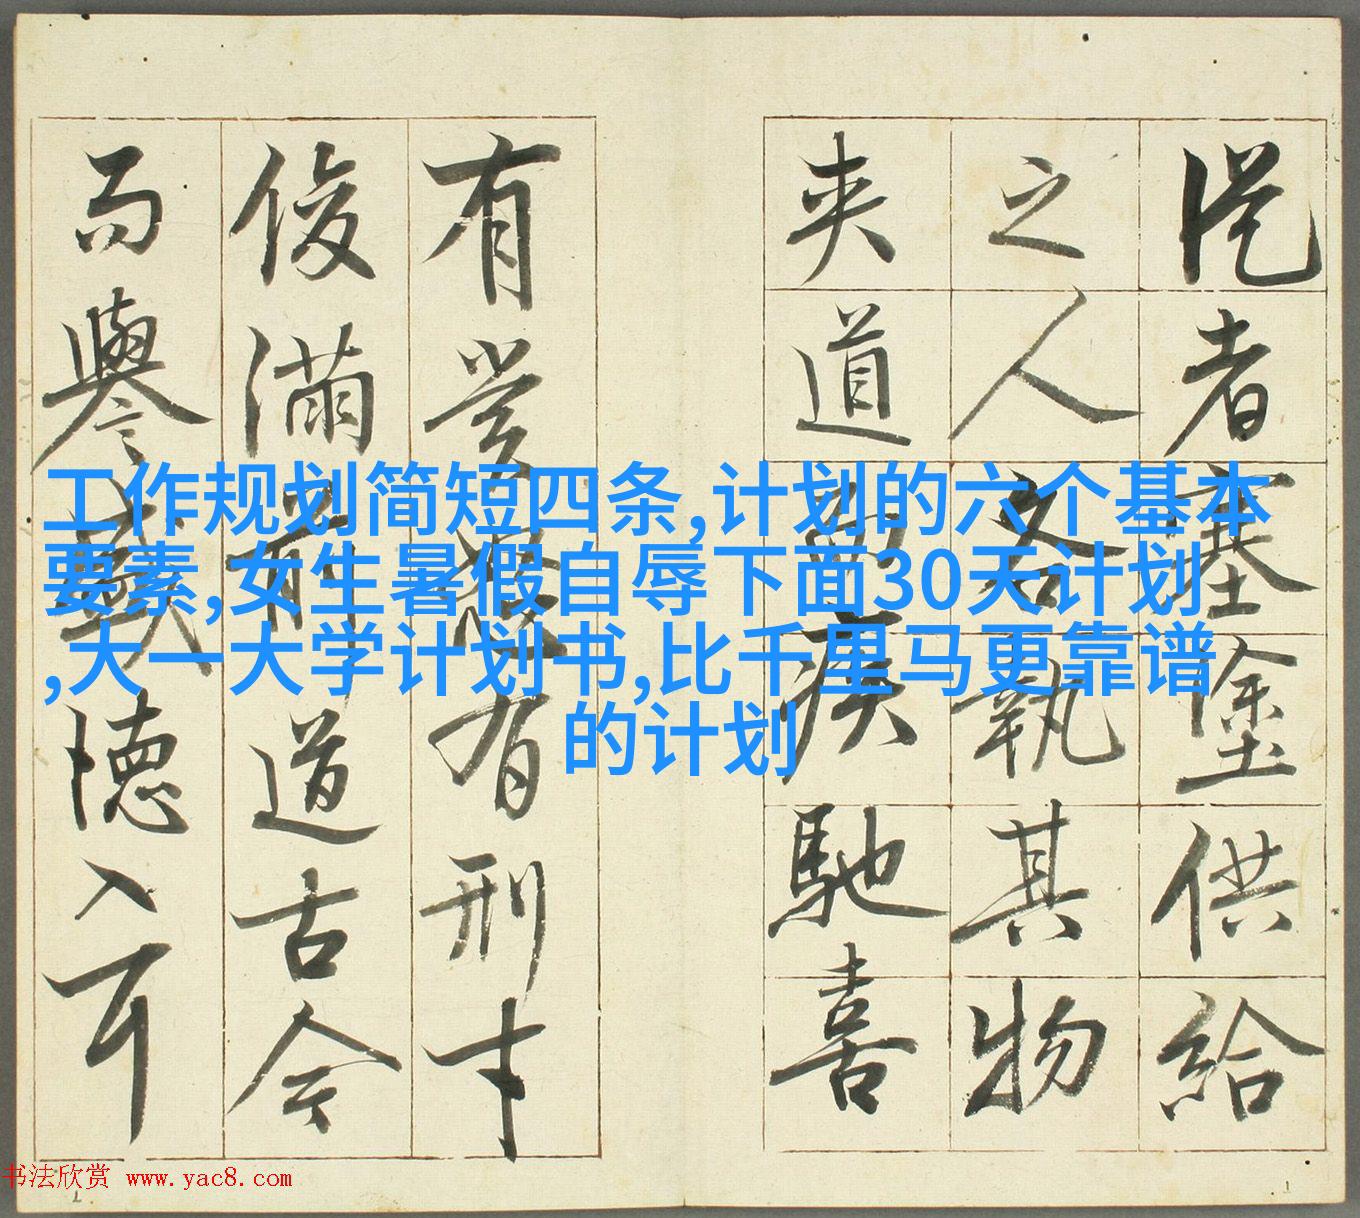 從者塞塗供給
之人各執其物
夾道而疾馳喜
有賞怒有刑才
俊滿前道古今
而譽盛德入耳
工作规划简短四条,计划的六个基本
要素,女生暑假自辱下面30天计划
,大一大学计划书,比千里马更靠谱
的计划
书法欣赏 www.yac8.com